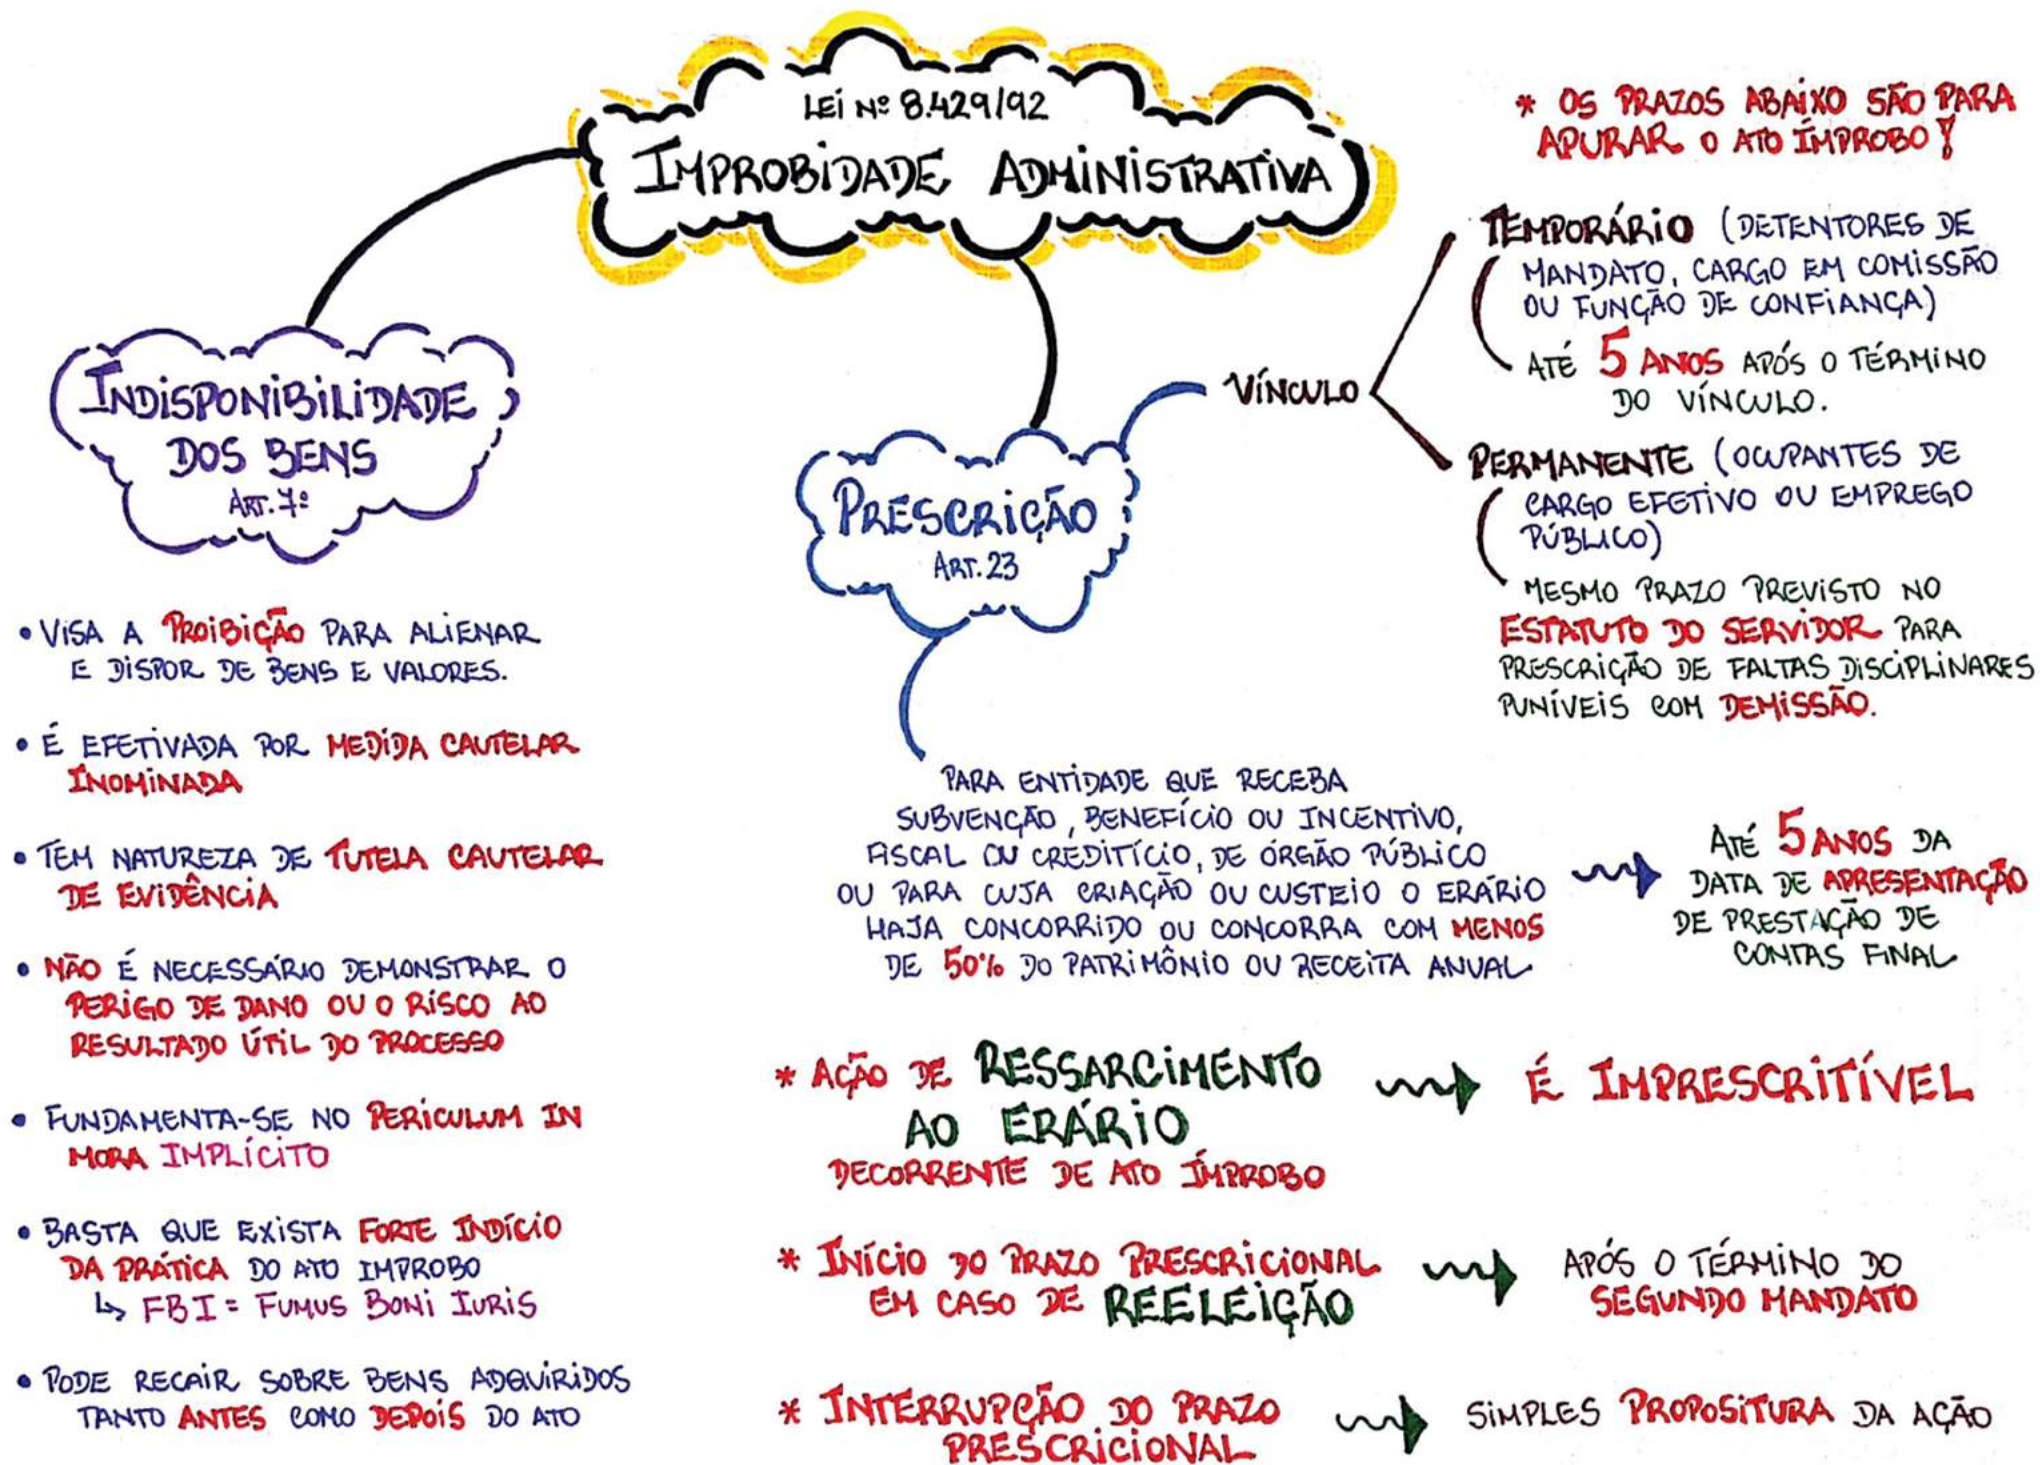 LEI Nº 8.429/92
IMPROBIDADE ADMINISTRATIVA
INDISPONIBILIDADE
DOS BENS
ART. 7º
• VISA A PROIBIÇÃO PARA ALIENAR
E DISPOR DE BENS E VALORES.
• É EFETIVADA POR MEDIDA CAUTELAR
INOMINADA
• TEM NATUREZA DE TUTELA CAUTELAR
DE EVIDÊNCIA
• NÃO É NECESSÁRIO DEMONSTRAR O
PERIGO DE DANO OU O RISCO AO
RESULTADO ÚTIL DO PROCESSO
• FUNDAMENTA-SE NO PERICULUM IN
MORA IMPLÍCITO
• BASTA QUE EXISTA FORTE INDÍCIO
DA PRÁTICA DO ATO IMPROBO
↳ FBI = FUMUS BONI IURIS
• PODE RECAIR SOBRE BENS ADQUIRIDOS
TANTO ANTES COMO DEPOIS DO ATO
PRESCRIÇÃO
ART. 23
VÍNCULO
* OS PRAZOS ABAIXO SÃO PARA
APURAR O ATO ÍMPROBO!
TEMPORÁRIO (DETENTORES DE
MANDATO, CARGO EM COMISSÃO
OU FUNÇÃO DE CONFIANÇA)
ATÉ 5 ANOS APÓS O TÉRMINO
DO VÍNCULO.
PERMANENTE (OCUPANTES DE
CARGO EFETIVO OU EMPREGO
PÚBLICO)
MESMO PRAZO PREVISTO NO
ESTATUTO DO SERVIDOR PARA
PRESCRIÇÃO DE FALTAS DISCIPLINARES
PUNÍVEIS COM DEMISSÃO.
PARA ENTIDADE QUE RECEBA
SUBVENÇÃO, BENEFÍCIO OU INCENTIVO,
FISCAL OU CREDITÍCIO, DE ÓRGÃO PÚBLICO
OU PARA CUJA CRIAÇÃO OU CUSTEIO O ERÁRIO
HAJA CONCORRIDO OU CONCORRA COM MENOS
DE 50% DO PATRIMÔNIO OU RECEITA ANUAL
ATÉ 5 ANOS DA
DATA DE APRESENTAÇÃO
DE PRESTAÇÃO DE
CONTAS FINAL
* AÇÃO DE RESSARCIMENTO
AO ERÁRIO
DECORRENTE DE ATO ÍMPROBO
É IMPRESCRITÍVEL
* INÍCIO DO PRAZO PRESCRICIONAL
EM CASO DE REELEIÇÃO
APÓS O TÉRMINO DO
SEGUNDO MANDATO
* INTERRUPÇÃO DO PRAZO
PRESCRICIONAL
SIMPLES PROPOSITURA DA AÇÃO